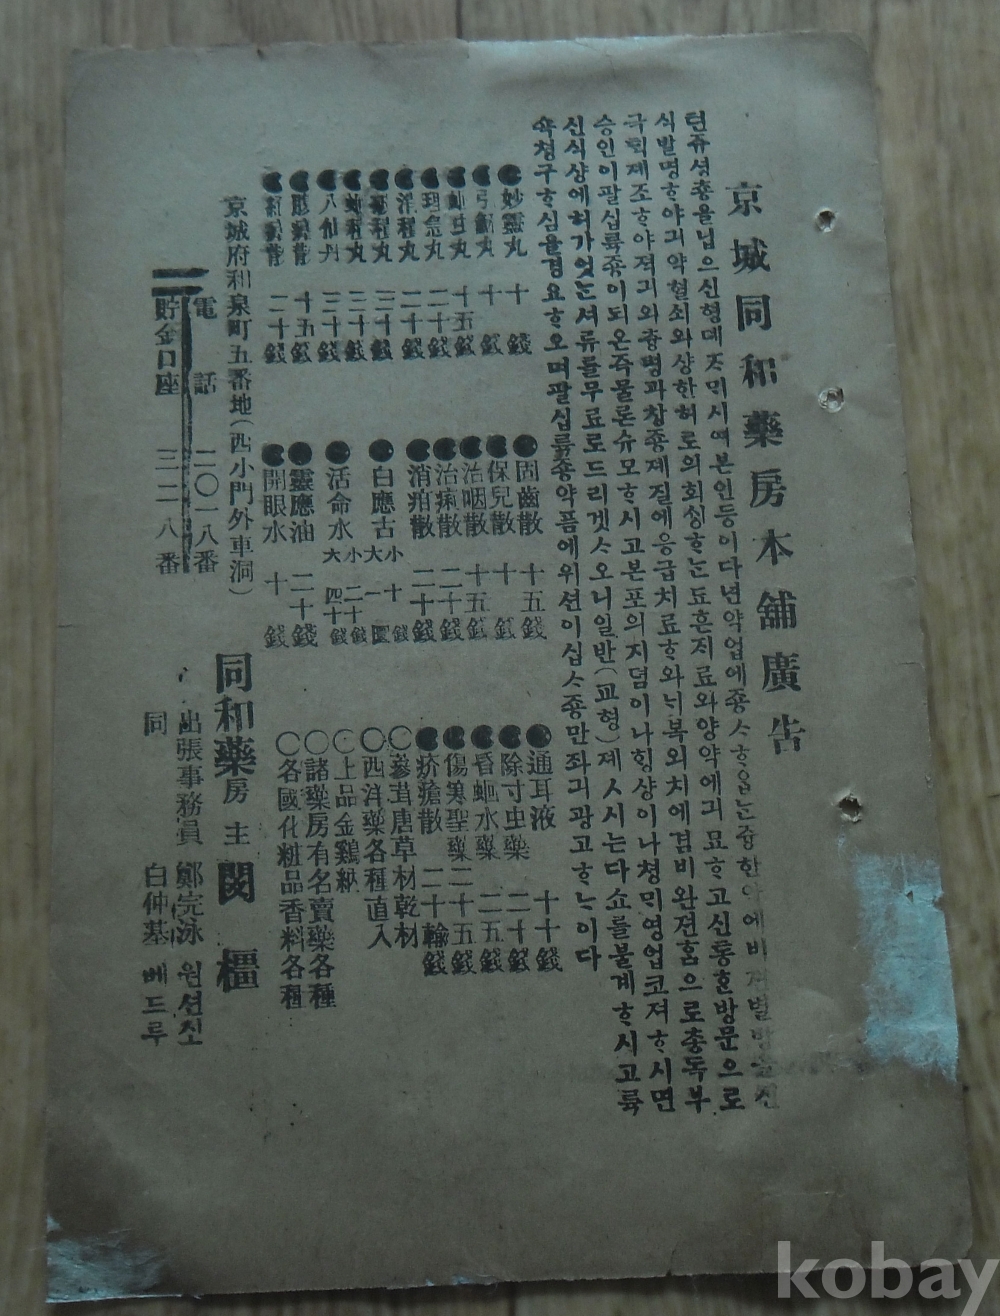 京城同和藥房本舖廣告
텬쥬셧춍을닙으신형뎨ᄌᆞᄆᆡ시여본인등이다년약업에죵ᄉᆞᄒᆞ옵ᄂᆞᆫ즁한약에비젼별방을신
식발명ᄒᆞ야긔약혈쇠와샹한허로의회싱ᄒᆞᄂᆞᆫ됴흔ᄌᆡ료와양약에긔묘ᄒᆞ고신통ᄒᆞᆫ방문으로
극획졔조ᄒᆞ야져긔와츙병과창죵졔질에응급치료ᄒᆞ와ᄂᆡ복외치에겸비완젼홈으로춍독부
승인이팔십륙죵이되온즉물론슈모ᄒᆞ시고본포의지뎜이나ᄒᆡᆼ샹이나쳥ᄆᆡ영업코져ᄒᆞ시면
신식샹에허가잇ᄂᆞᆫ셔류를무료로드리겟ᄉᆞ오니일반(교형)졔시ᄂᆞᆫ다쇼를불계ᄒᆞ시고륙
쇽쳥구ᄒᆞ심을경요ᄒᆞ오며팔십륙죵약픔에위션이십ᄉᆞ죵만좌긔광고ᄒᆞᄂᆞ이다
●妙靈丸 十錢
十錢
十五錢
●理急丸 二十錢
●洋程丸 二十錢
三十錢
三十錢
●八仙丹 三十錢
十五錢
二十錢
●固齒散 十五錢
●保兒散 十錢
●治咽散 十五錢
●治痢散 二十錢
●消疳散 二十錢
●白應古 小 十錢 大 一圜
●活命水 小 二十錢 大 四十錢
●靈應油 二十錢
●開眼水 十錢
●通耳液 十錢
●除寸虫藥 二十錢
●昏蛔水藥 二五錢
●傷寒聖藥 二十五錢
●疥瘡散 二十錢
○蔘茸唐草材乾材
○西洋藥各種直入
○上品金鷄蜡
○諸藥房有名賣藥各種
○各國化粧品香料各種
京城府和泉町五番地(西小門外車洞)
同和藥房主 閔橿
電話 二〇一八番
出張事務員 鄭完泳 원션시
貯金口座 三二一八番
同 白仲基 베드루
kobay